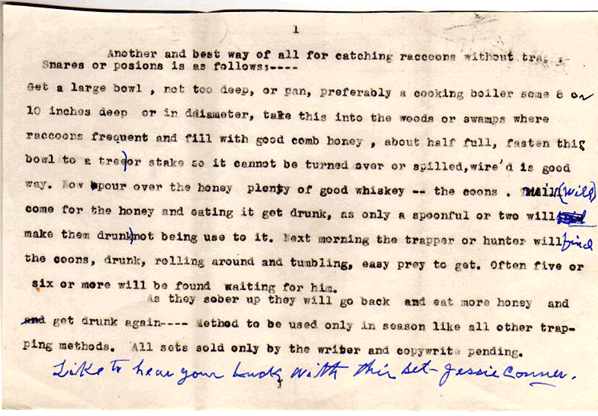 1
Another and best way of all for catching raccoons without trap
Snares or posions is as follows:----
Get a large bowl , not too deep, or pan, preferably a cooking boiler some 8 or
10 inches deep or in ddiameter, take this into the woods or swamps where
raccoons frequent and fill with good comb honey , about half full, fasten this
bowl to a tree)or stake so it cannot be turned over or spilled,wire'd is good
way. Now pour over the honey plenty of good whiskey -- the coons . will (will)
come for the honey and eating it get drunk, as only a spoonful or two will
make them drunk)not being use to it. Next morning the trapper or hunter will find
the coons, drunk, rolling around and tumbling, easy prey to get. Often five or
six or more will be found waiting for him.
As they sober up they will go back and eat more honey and
and get drunk again---- Method to be used only in season like all other trap-
ping methods. All sets sold only by the writer and copywrite pending.
Like to hear your luck with this set- Jessie Conner.